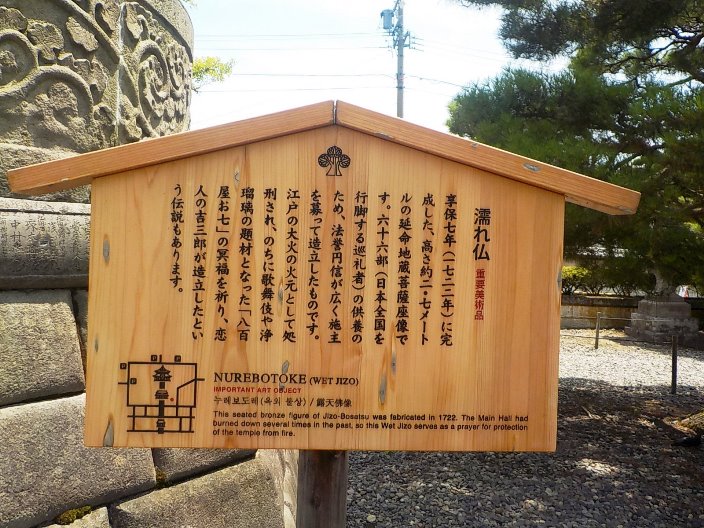 濡れ仏 重要美術品
享保七年(一七二二年)に完
成した、高さ約二・七メート
ルの延命地蔵菩薩座像で
す。六十六部(日本全国を
行脚する巡礼者)の供養の
ため、法誉円信が広く施主
を募って造立したものです。
江戸の大火の火元として処
刑され、のちに歌舞伎や浄
瑠璃の題材となった「八百
屋お七」の冥福を祈り、恋
人の吉三郎が造立したとい
う伝説もあります。
NUREBOTOKE (WET JIZO)
IMPORTANT ART OBJECT
누레보도케(옥외 불상) / 露天佛像
This seated bronze figure of Jizo-Bosatsu was fabricated in 1722. The Main Hall had
burned down several times in the past, so this Wet Jizo serves as a prayer for protection
of the temple from fire.
P P
P